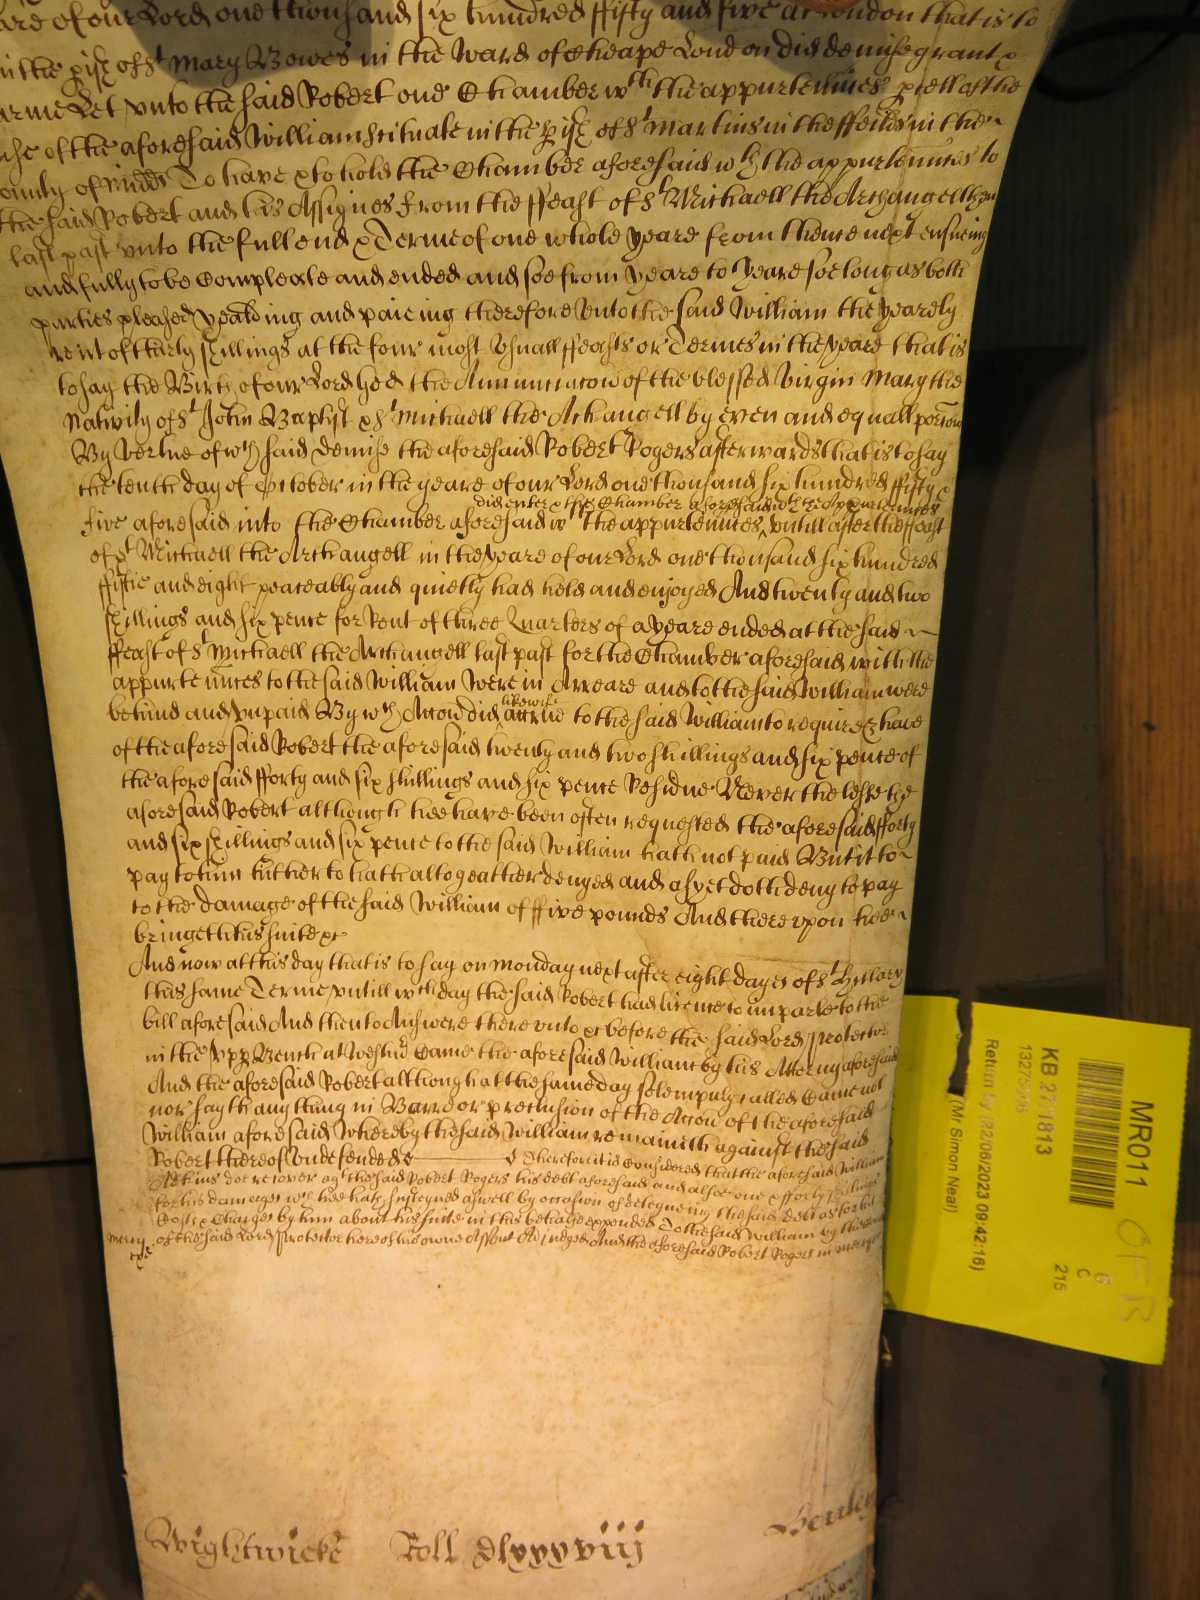 of our Lord one thousand six hundred ffifty and five at London that is to
in the pish of St Mary Bowes in the Ward of Cheape London did demise grant &
ferme Let unto the said Robert one Chamber wth the appurtennces pcell of the
of the aforesaid William scituate in the pish of St Martins in the ffeilds in the
County of Midds To have & to hold the Chamber aforesaid wth the appurtennces to
the said Robert and his Assignes from the ffeast of St Michaell the Archangell then
last past unto the full end & Terme of one whole yeare from thence next ensueing
and fully to be Compleate and ended and soe from yeare to yeare soe long as both
parties pleased yealding and paieing therefore unto the said William the yearely
rent of thirty shillings at the four most Usuall ffeasts or Termes in the yeare that is
to say the Birth of our Lord God the Annunciacon of the blessed Virgin Mary the
Nativity of St John Baptist & St Michaell the Archangell by even and equall porcons
By vertue of wch said Demise the aforesaid Robert Rogers afterwards that is to say
the tenth day of October in the yeare of our Lord one thousand six hundred ffifty &
did enter & the Chamber aforesaid wth the Appurtennces
five aforesaid into the Chamber aforesaid wth the appurtennces untill after the ffeast
of St Michaell the Archangell in the yeare of our Lord one thousand six hundred
ffiftie and eight peaceably and quietly had held and enjoyed And twenty and two
shillings and six pence for Rent of three Quarters of a yeare ended at the said
ffeast of St Michaell the Archangell last past for the Chamber aforesaid with the
appurtennces to the said William were in Arreare and to the said William were
behind and unpaid By wch Accon did likewise accrue to the said William to require & have
of the aforesaid Robert the aforesaid twenty and two shillings and six pence of
the aforesaid fforty and six shillings and six pence Residue Neverthelesse the
aforesaid Robert although hee have been often requested the aforesaid fforty
and six shillings and six pence to the said William hath not paid But it to
pay to him hitherto hath altogeather denyed and as yet doth deny to pay
to the damage of the said William of ffive pounds And thereupon hee
bringeth his suite &c
And now at this day that is to say on Monday next after eight dayes of St Hillary
this same Terme untill wch day the said Robert had licence to imparle to the
bill aforesaid And then to Answere thereunto &c before the said Lord Protector
in the Upp Bench at Westmr Came the aforesaid William by his Attorny aforesaid
And the aforesaid Robert although at the same day solempnly called Came not
nor sayth any thing in Barre or preclusion of the Accon of the aforesaid
William aforesaid whereby the said William remaineth against the said
Robert thereof Undefended Therefore it is Considered that the aforesaid William
Adkins doe recover agt the said Robert Rogers his debt aforesaid and alsoe one & fforty shillings
for his damages wch hee hath susteyned aswell by occasion of deteyneing the said debt as for his
Costs & Charges by him about his suite in this behalfe expended To the said William by the Court
mercy of the said Lord Protector here of his owne Assent Adjudged And the aforesaid Robert Rogers in mercy
&c
Wightwicke Roll dlxxxxviij Henley
MR011
KB 27/1813
Return by (22/06/2023 09:42:16)
(Mr Simon Neal)
6
C
215
OF B